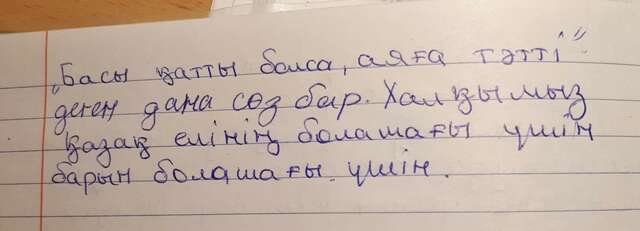 „Басы қатты болса, аяға тәтті"
деген дана сөз бар. Халқымыз
қазақ елінің болашағы үшін
барын болашағы үшін.